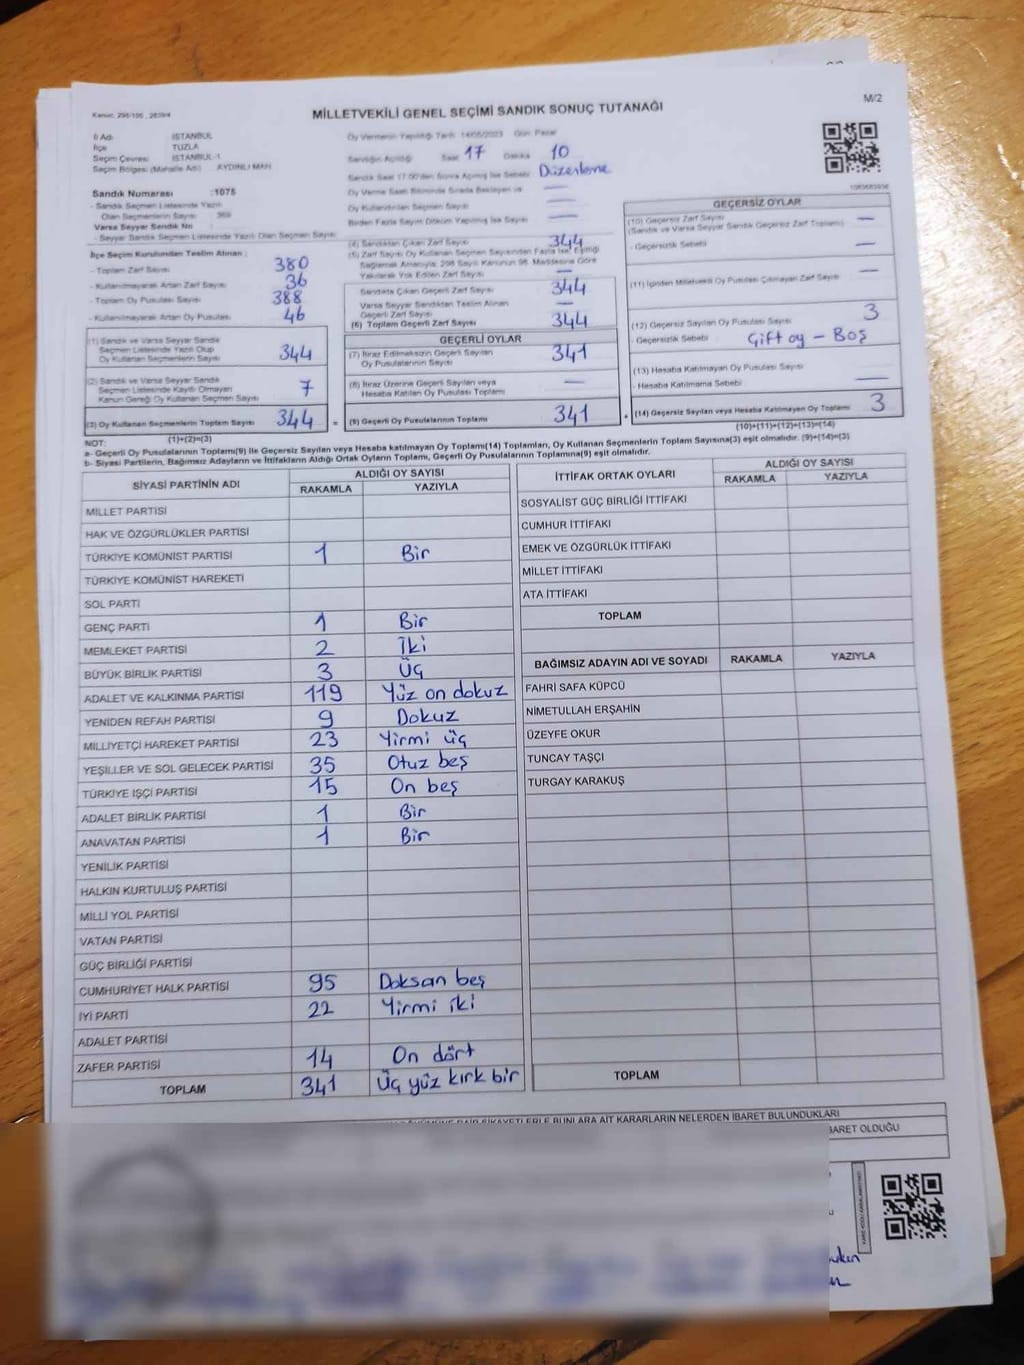 Kanun: 298/105 , 2839/4
MİLLETVEKİLİ GENEL SEÇİMİ SANDIK SONUÇ TUTANAĞI
M/2
İl Adı : İSTANBUL
İlçe : TUZLA
Seçim Çevresi : İSTANBUL-1
Seçim Bölgesi (Mahalle Adı) : AYDINLI MAH
Sandık Numarası :1075
- Sandık Seçmen Listesinde Yazılı
Olan Seçmenlerin Sayısı
Varsa Seyyar Sandık No :
- Seyyar Sandık Seçmen Listesinde Yazılı Olan Seçmen Sayısı:
İlçe Seçim Kurulundan Teslim Alınan :
- Toplam Zarf Sayısı 380
- Kullanılmayarak Artan Zarf Sayısı 36
- Toplam Oy Pusulası Sayısı 388
- Kullanılmayarak Artan Oy Pusulası 46
(1) Sandık ve Varsa Seyyar Sandık
Seçmen Listesinde Yazılı Olup
Oy Kullanan Seçmenlerin Sayısı 344
(2) Sandık ve Varsa Seyyar Sandık
Seçmen Listesinde Kayıtlı Olmayan
Kanun Gereği Oy Kullanan Seçmen Sayısı 7
(3) Oy Kullanan Seçmenlerin Toplam Sayısı 344
(1)+(2)=(3)
Oy Vermenin Yapıldığı Tarih: 14/05/2023 Gün: Pazar
Sandığın Açıldığı Saat 17 Dakika 10
Sandık Saat 17.00'den Sonra Açılmış İse Sebebi Düzenleme
Oy Verme Saati Bitiminde Sırada Bekleyen ve
Oy Kullandırılan Seçmen Sayısı —
Birden Fazla Sayım Döküm Yapılmış İse Sayısı —
(4) Sandıktan Çıkan Zarf Sayısı 344
(5) Zarf Sayısı Oy Kullanan Seçmen Sayısından Fazla İse, Eşitliği
Sağlamak Amacıyla, 298 Sayılı Kanunun 98. Maddesine Göre
Yakılarak Yok Edilen Zarf Sayısı —
Sandıkta Çıkan Geçerli Zarf Sayısı 344
Varsa Seyyar Sandıktan Teslim Alınan
Geçerli Zarf Sayısı —
(6) Toplam Geçerli Zarf Sayısı 344
GEÇERLİ OYLAR
(7) İtiraz Edilmeksizin Geçerli Sayılan
Oy Pusulalarının Sayısı 341
(8) İtiraz Üzerine Geçerli Sayılan veya
Hesaba Katılan Oy Pusulası Toplamı —
= (9) Geçerli Oy Pusulalarının Toplamı 341
GEÇERSİZ OYLAR
(10) Geçersiz Zarf Sayısı —
(Sandık ve Varsa Seyyar Sandık Geçersiz Zarf Toplamı)
- Geçersizlik Sebebi —
(11) İçinden Milletvekili Oy Pusulası Çıkmayan Zarf Sayısı —
(12) Geçersiz Sayılan Oy Pusulası Sayısı 3
- Geçersizlik Sebebi Çift oy – Boş
(13) Hesaba Katılmayan Oy Pusulası Sayısı
- Hesaba Katılmama Sebebi —
+ (14) Geçersiz Sayılan veya Hesaba Katılmayan Oy Toplamı 3
(10)+(11)+(12)+(13)=(14)
NOT:
a- Geçerli Oy Pusulalarının Toplamı(9) ile Geçersiz Sayılan veya Hesaba katılmayan Oy Toplamı(14) Toplamları, Oy Kullanan Seçmenlerin Toplam Sayısına(3) eşit olmalıdır. (9)+(14)=(3)
b- Siyasi Partilerin, Bağımsız Adayların ve İttifakların Aldığı Ortak Oyların Toplamı, Geçerli Oy Pusulalarının Toplamına(9) eşit olmalıdır.
SİYASİ PARTİNİN ADI ALDIĞI OY SAYISI
RAKAMLA YAZIYLA
MİLLET PARTİSİ
HAK VE ÖZGÜRLÜKLER PARTİSİ
TÜRKİYE KOMÜNİST PARTİSİ 1 Bir
TÜRKİYE KOMÜNİST HAREKETİ
SOL PARTİ
GENÇ PARTİ 1 Bir
MEMLEKET PARTİSİ 2 İki
BÜYÜK BİRLİK PARTİSİ 3 Üç
ADALET VE KALKINMA PARTİSİ 119 Yüz on dokuz
YENİDEN REFAH PARTİSİ 9 Dokuz
MİLLİYETÇİ HAREKET PARTİSİ 23 Yirmi üç
YEŞİLLER VE SOL GELECEK PARTİSİ 35 Otuz beş
TÜRKİYE İŞÇİ PARTİSİ 15 On beş
ADALET BİRLİK PARTİSİ 1 Bir
ANAVATAN PARTİSİ 1 Bir
YENİLİK PARTİSİ
HALKIN KURTULUŞ PARTİSİ
MİLLİ YOL PARTİSİ
VATAN PARTİSİ
GÜÇ BİRLİĞİ PARTİSİ
CUMHURİYET HALK PARTİSİ 95 Doksan beş
İYİ PARTİ 22 Yirmi iki
ADALET PARTİSİ
ZAFER PARTİSİ 14 On dört
TOPLAM 341 Üç yüz kırk bir
İTTİFAK ORTAK OYLARI ALDIĞI OY SAYISI
RAKAMLA YAZIYLA
SOSYALİST GÜÇ BİRLİĞİ İTTİFAKI
CUMHUR İTTİFAKI
EMEK VE ÖZGÜRLÜK İTTİFAKI
MİLLET İTTİFAKI
ATA İTTİFAKI
TOPLAM
BAĞIMSIZ ADAYIN ADI VE SOYADI RAKAMLA YAZIYLA
FAHRİ SAFA KÜPCÜ
NİMETULLAH ERŞAHİN
ÜZEYFE OKUR
TUNCAY TAŞÇI
TURGAY KARAKUŞ
TOPLAM
ŞİKAYETLERLE BUNLARA AİT KARARLARIN NELERDEN İBARET BULUNDUKLARI
İBARET OLDUĞU